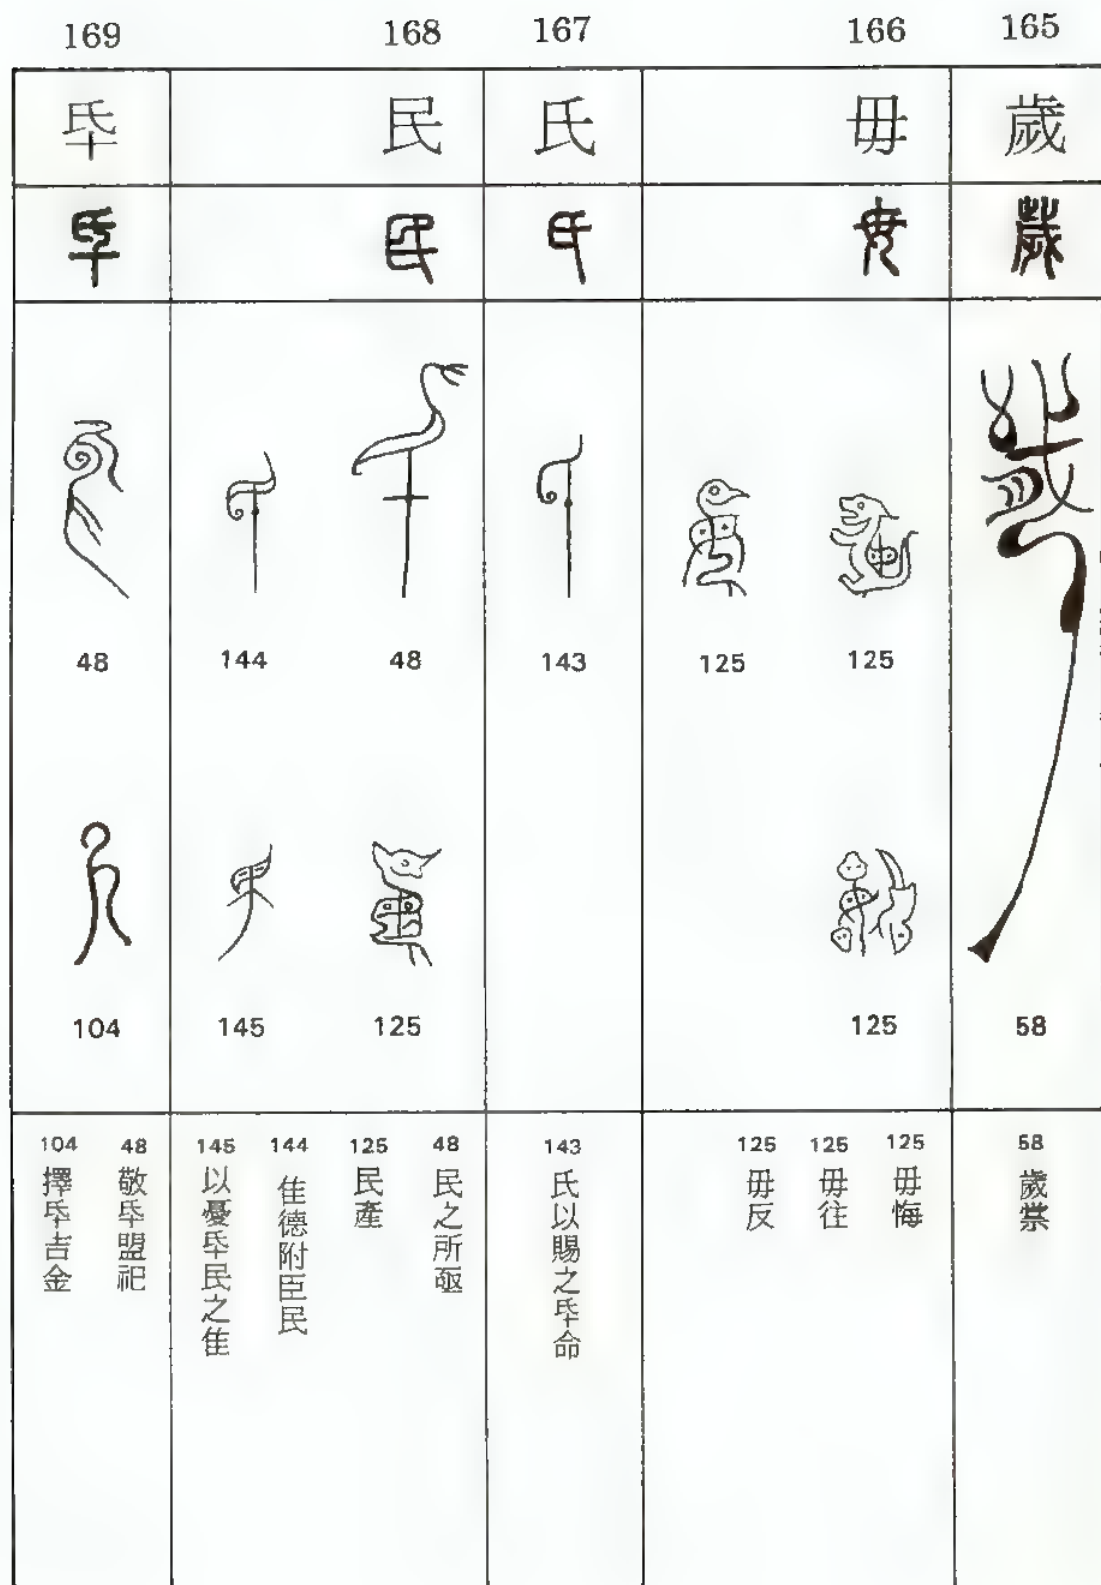 165
歲
58
58
歲祟
166
毋
125
125
125
125
毋悔
125
毋往
125
毋反
167
氏
143
143
氏以賜之氒命
168
民
48
144
125
145
48
民之所亟
125
民產
144
隹德附臣民
145
以憂氒民之隹
169
氒
48
104
48
敬氒盟祀
104
擇氒吉金